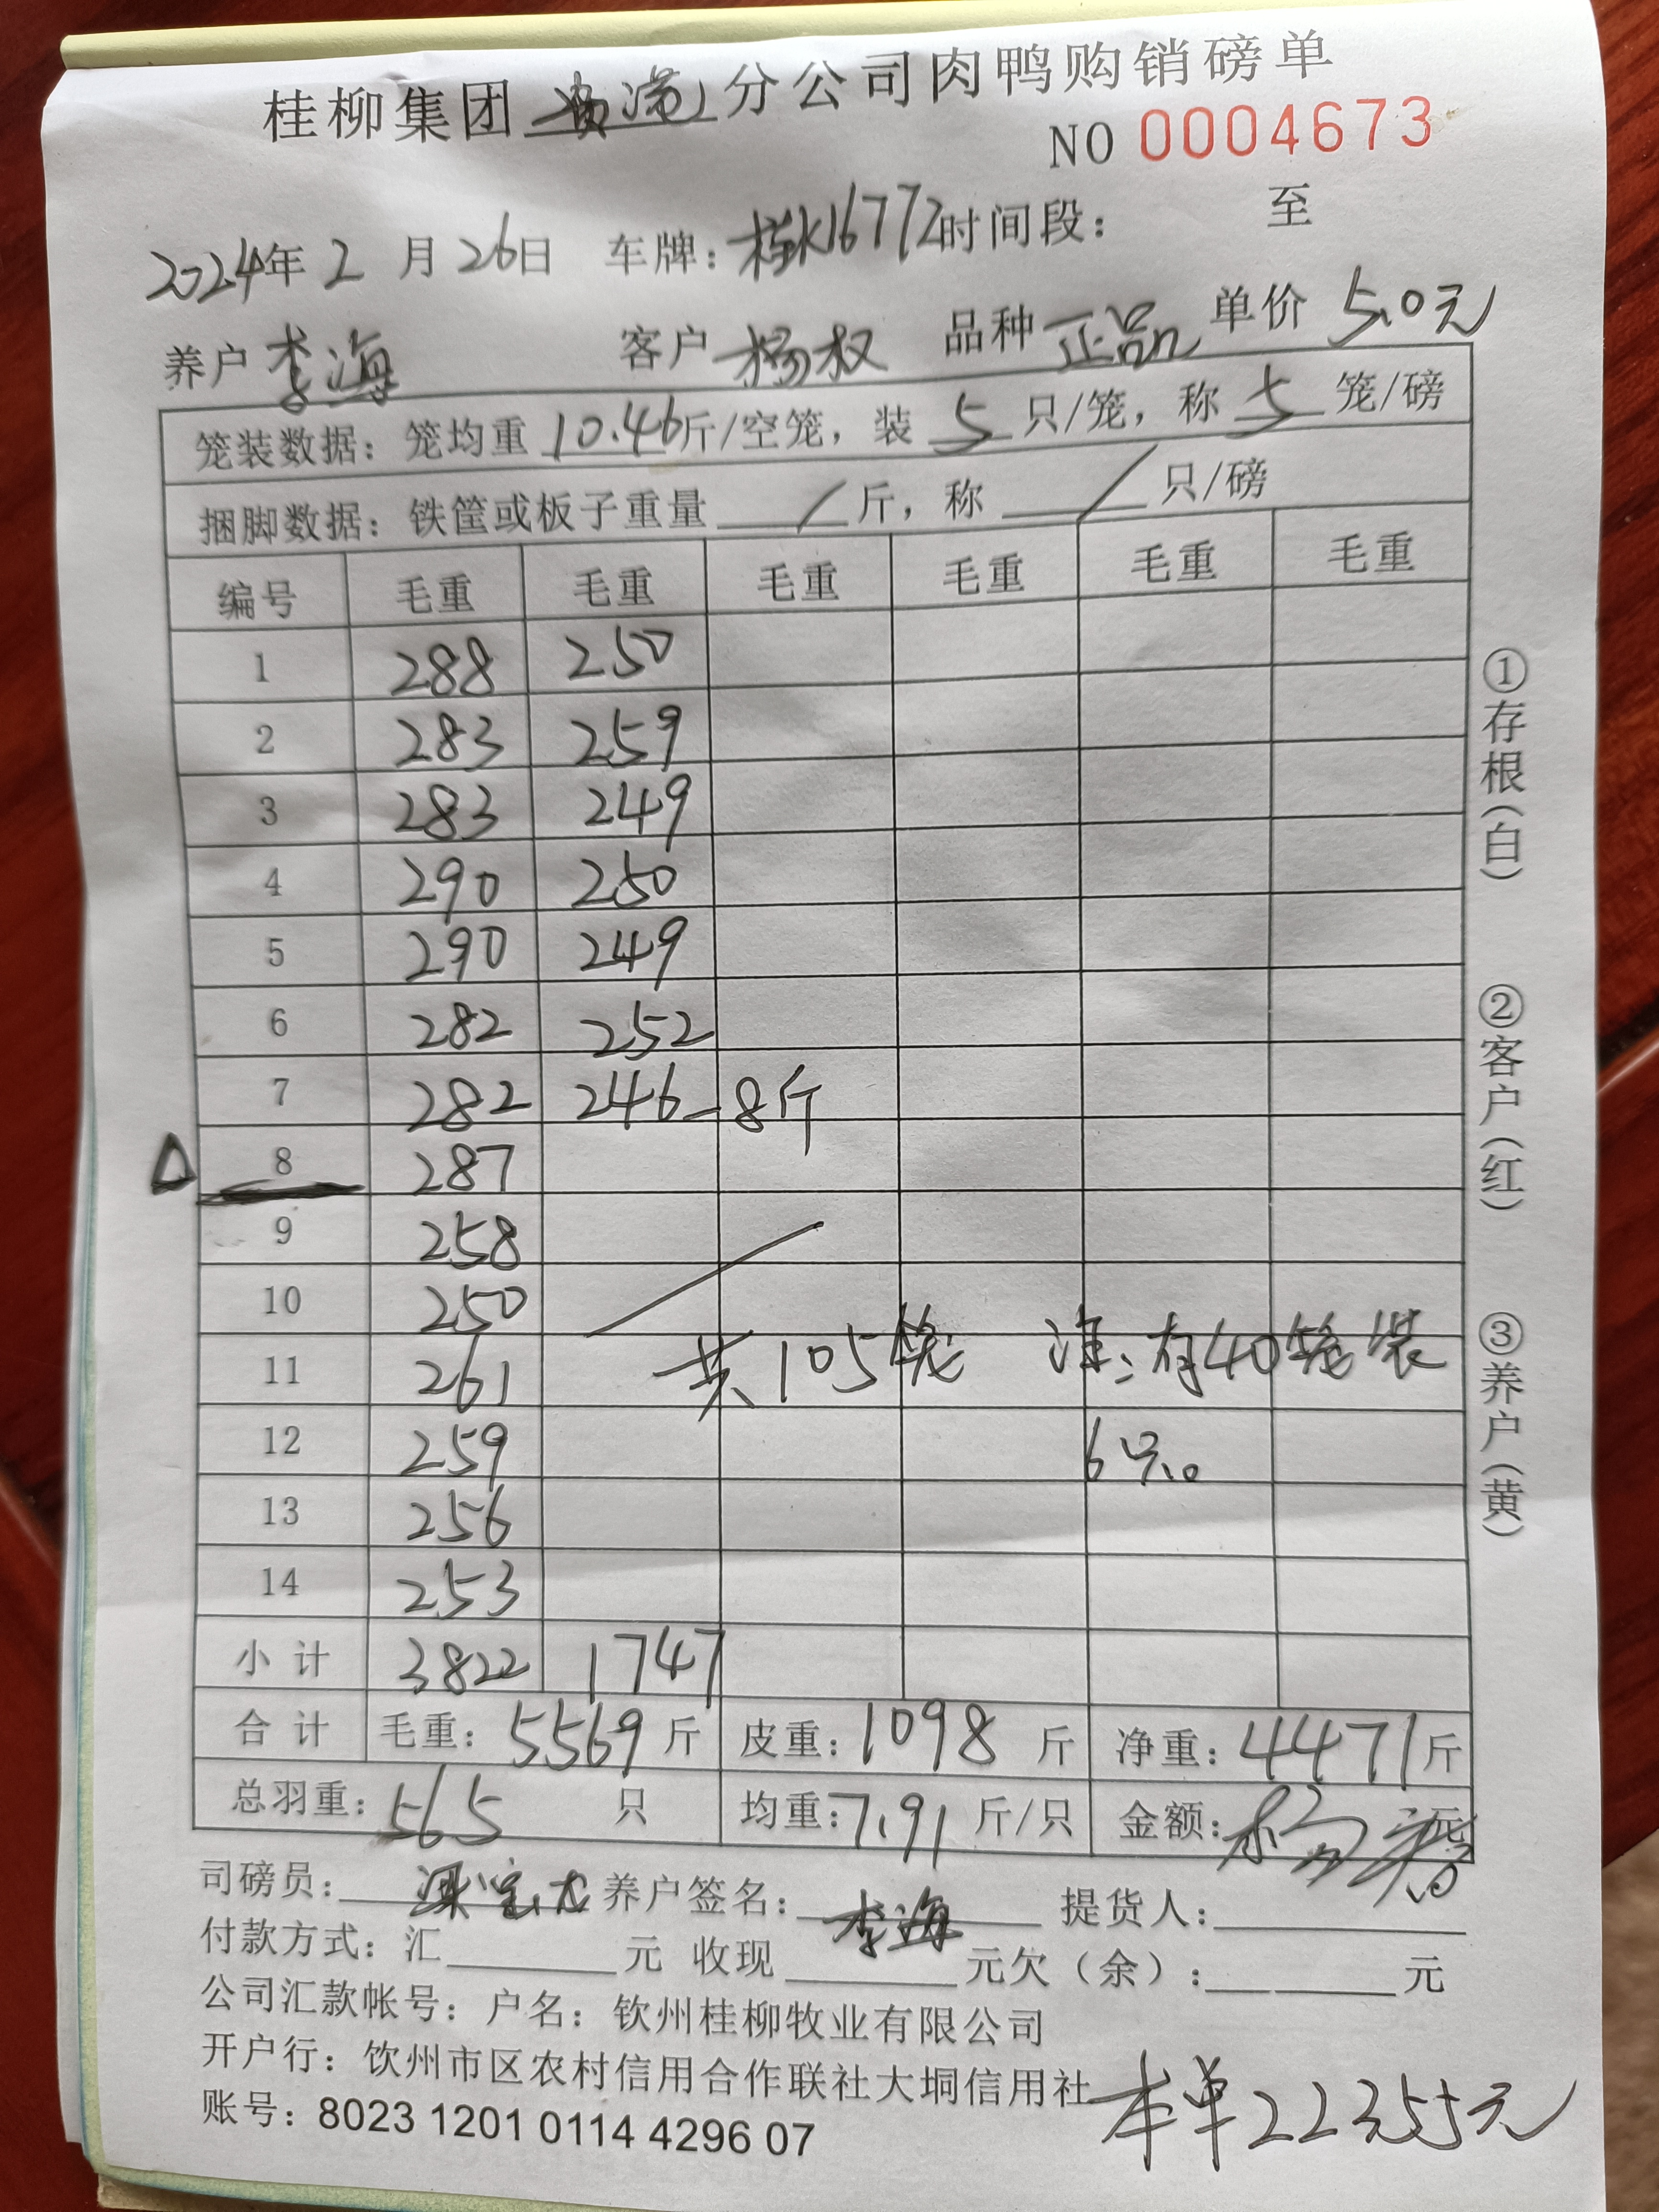 桂柳集团 分公司肉鸭购销磅单
NO 0004673
2024年2月26日 车牌:桂K16772时间段: 至
养户 李海 客户 杨权 品种 正品 单价 5.0元
笼装数据:笼均重 10.46斤/空笼,装 5 只/笼,称 5 笼/磅
捆脚数据:铁筐或板子重量 / 斤,称 / 只/磅
编号 毛重 毛重 毛重 毛重 毛重 毛重
1 288 250
2 283 259
3 283 249
4 290 250
5 290 249
6 282 252
7 282 246-8斤
△ 8 287
9 258
10 250
11 261 共105笼 注:有40笼装
12 259 6只。
13 256
14 253
小计 3822 1747
合计 毛重:5569斤 皮重:1098斤 净重:4471斤
总羽重:565 只 均重:7.91斤/只 金额: 元
司磅员: 养户签名:李海 提货人:
付款方式:汇 元 收现 元欠(余): 元
公司汇款帐号:户名:钦州桂柳牧业有限公司
开户行:钦州市区农村信用合作联社大垌信用社
账号:8023 1201 0114 4296 07
本单22355元
①存根(白)
②客户(红)
③养户(黄)